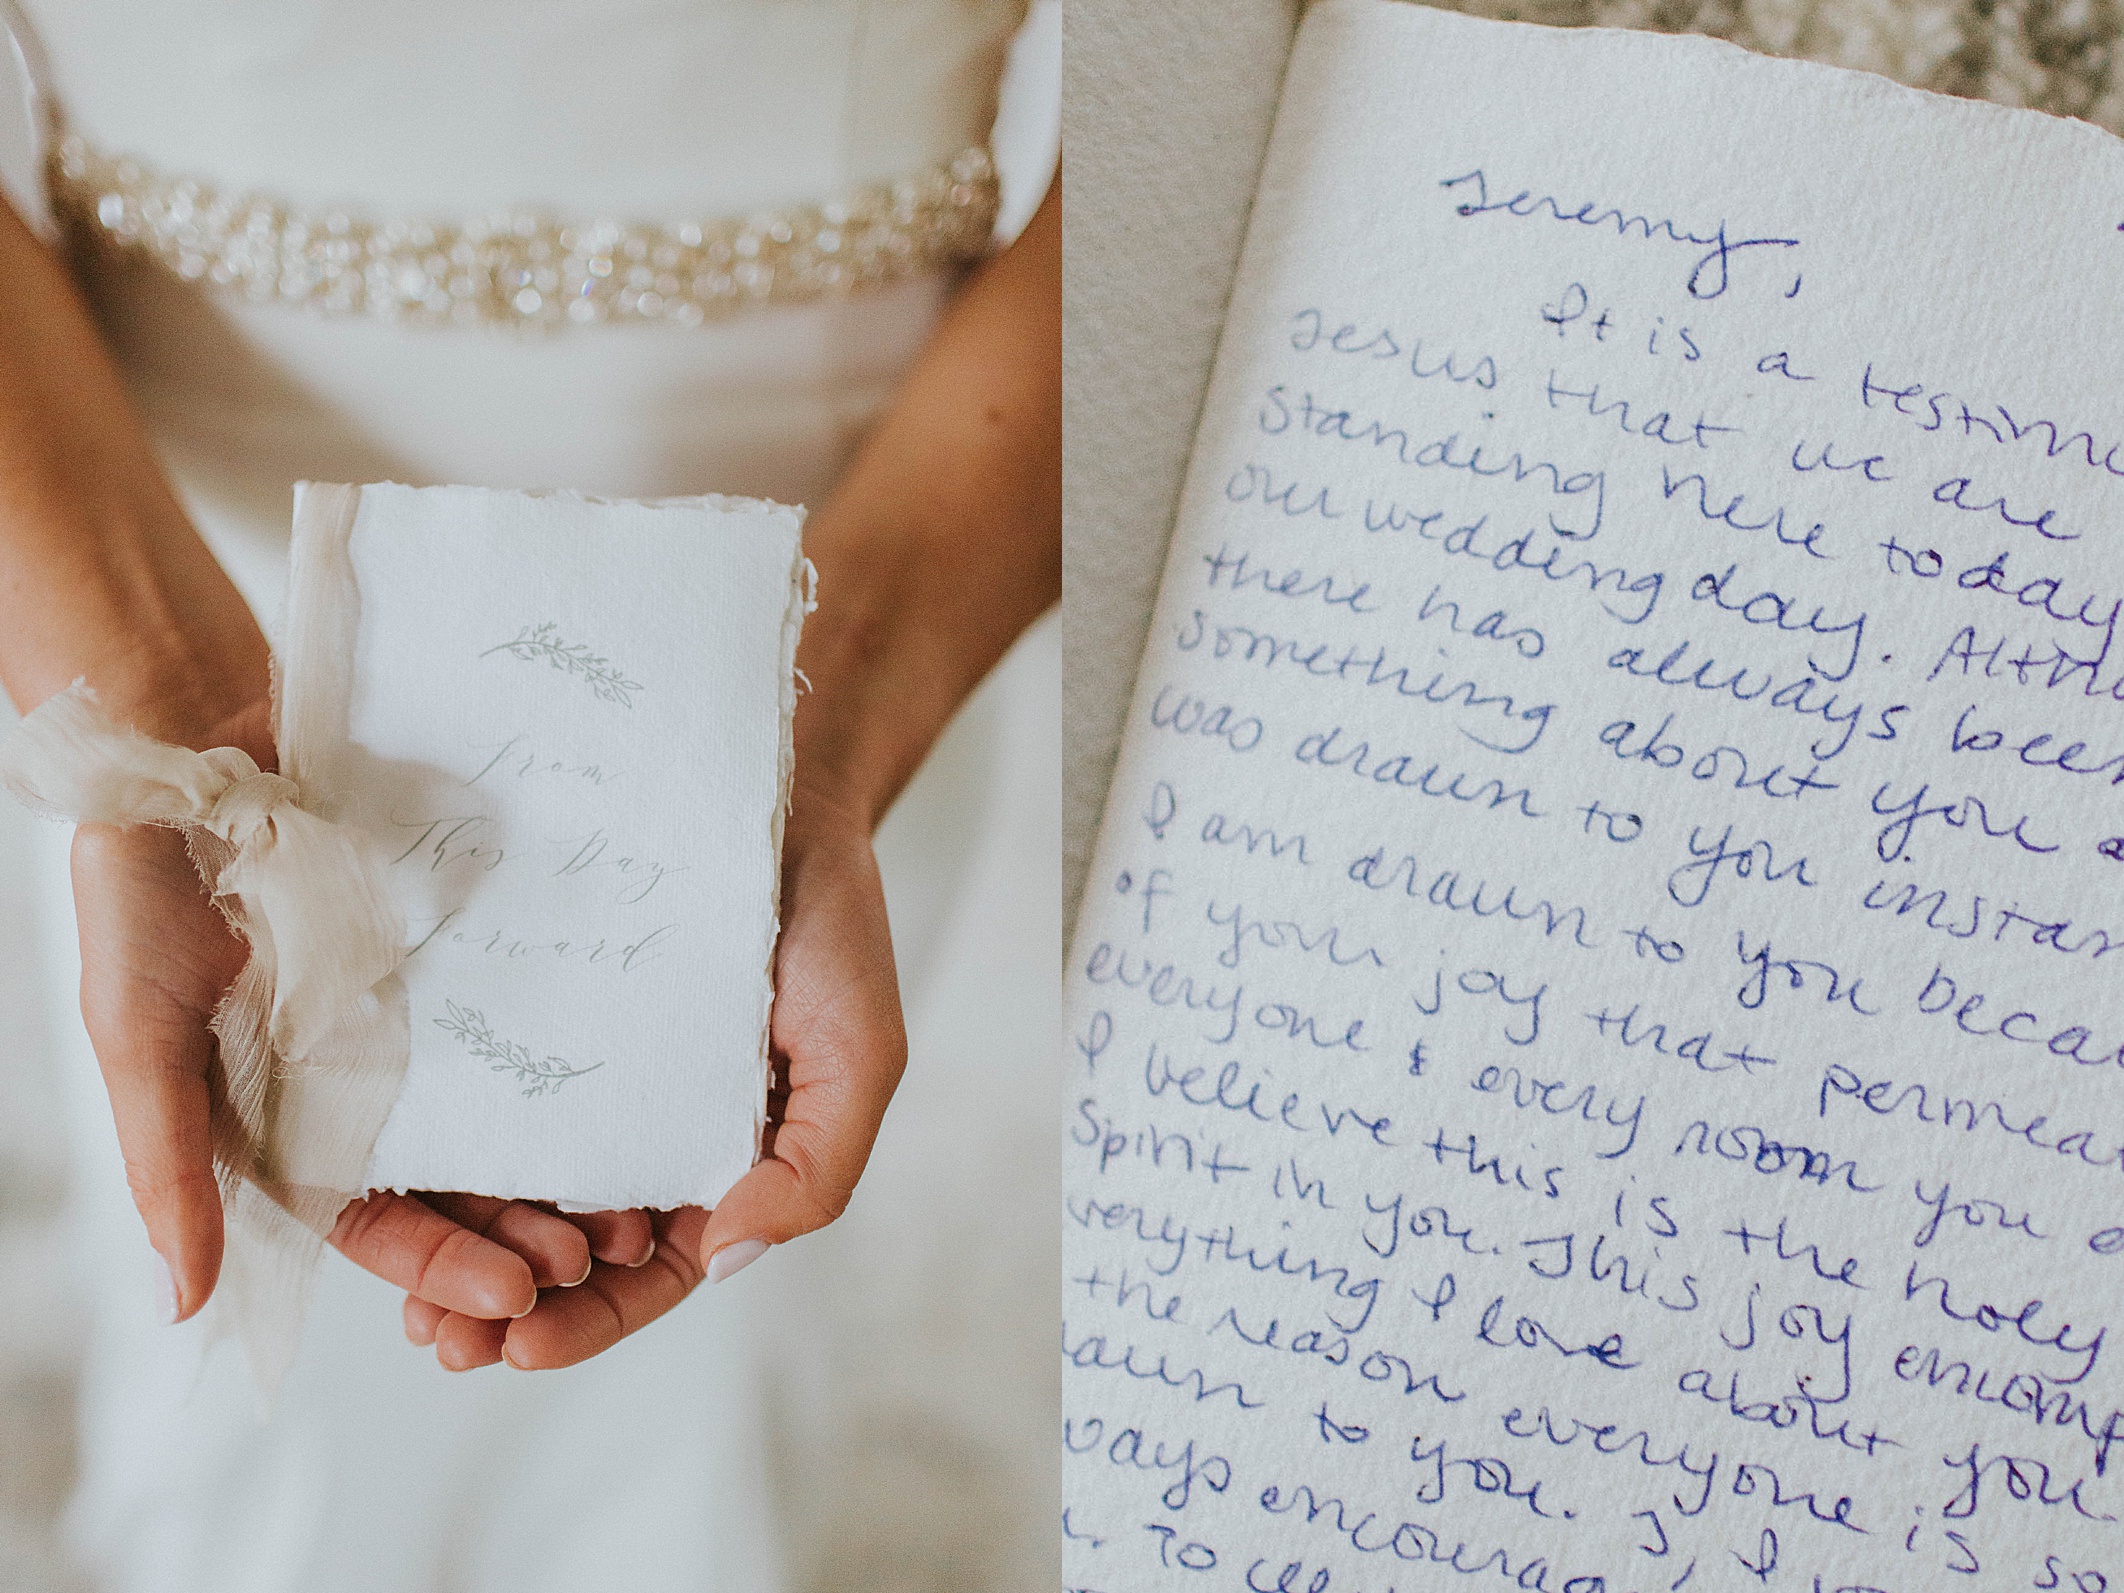 From
This Day
Forward
Jeremy,
It is a testimo
Jesus that we are
standing here today
our wedding day. Altho
there has always been
something about you a
was drawn to you instan
I am drawn to you becau
of your joy that permea
everyone & every room you e
I believe this is the holy
spirit in you. This joy encomp
verything I love about you.
the reason everyone is so
rawn to you. J, I
ways encourag
To